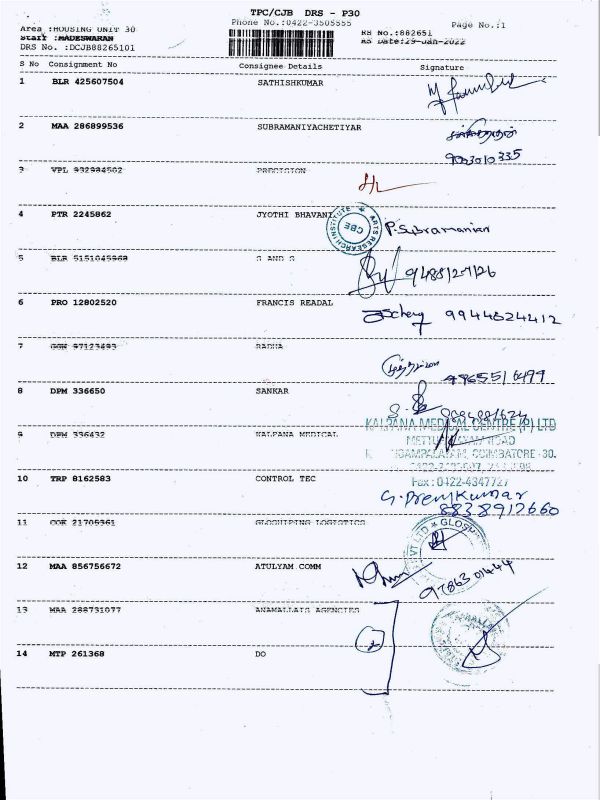 TPC/CJB DRS - P30
Phone No.:0422-3505555 Page No.:1
Area :HOUSING UNIT 30 RS No.:882651
Staff :MADESWARAN RS Date:29-Jan-2022
DRS No. :DCJB88265101
S No Consignment No Consignee Details Signature
1 BLR 425607504 SATHISHKUMAR
2 MAA 286899536 SUBRAMANIYACHETIYAR
9003010335
3 VPL 932984502 PRECISION
4 PTR 2245862 JYOTHI BHAVANI P. Subramanian
ARTS RESEARCH INSTITUTE CBE
5 BLR 5151045968 S AND S
9488127126
6 PRO 12802520 FRANCIS READAL
9944824412
7 GGN 97123493 RADHA
9965516499
8 DPM 336650 SANKAR
KALPANA MEDICAL CENTRE (P) LTD
9 DPM 336432 KALPANA MEDICAL
COIMBATORE - 30.
10 TRP 8162583 CONTROL TEC Fax : 0422-4347727
G. Premkumar
8838912660
11 COK 21705361 GLOSHIPING LOGISTICS
12 MAA 856756672 ATULYAM COMM
9786301444
13 MAA 288731077 ANAMALLAIS AGENCIES
2
14 MTP 261368 DO